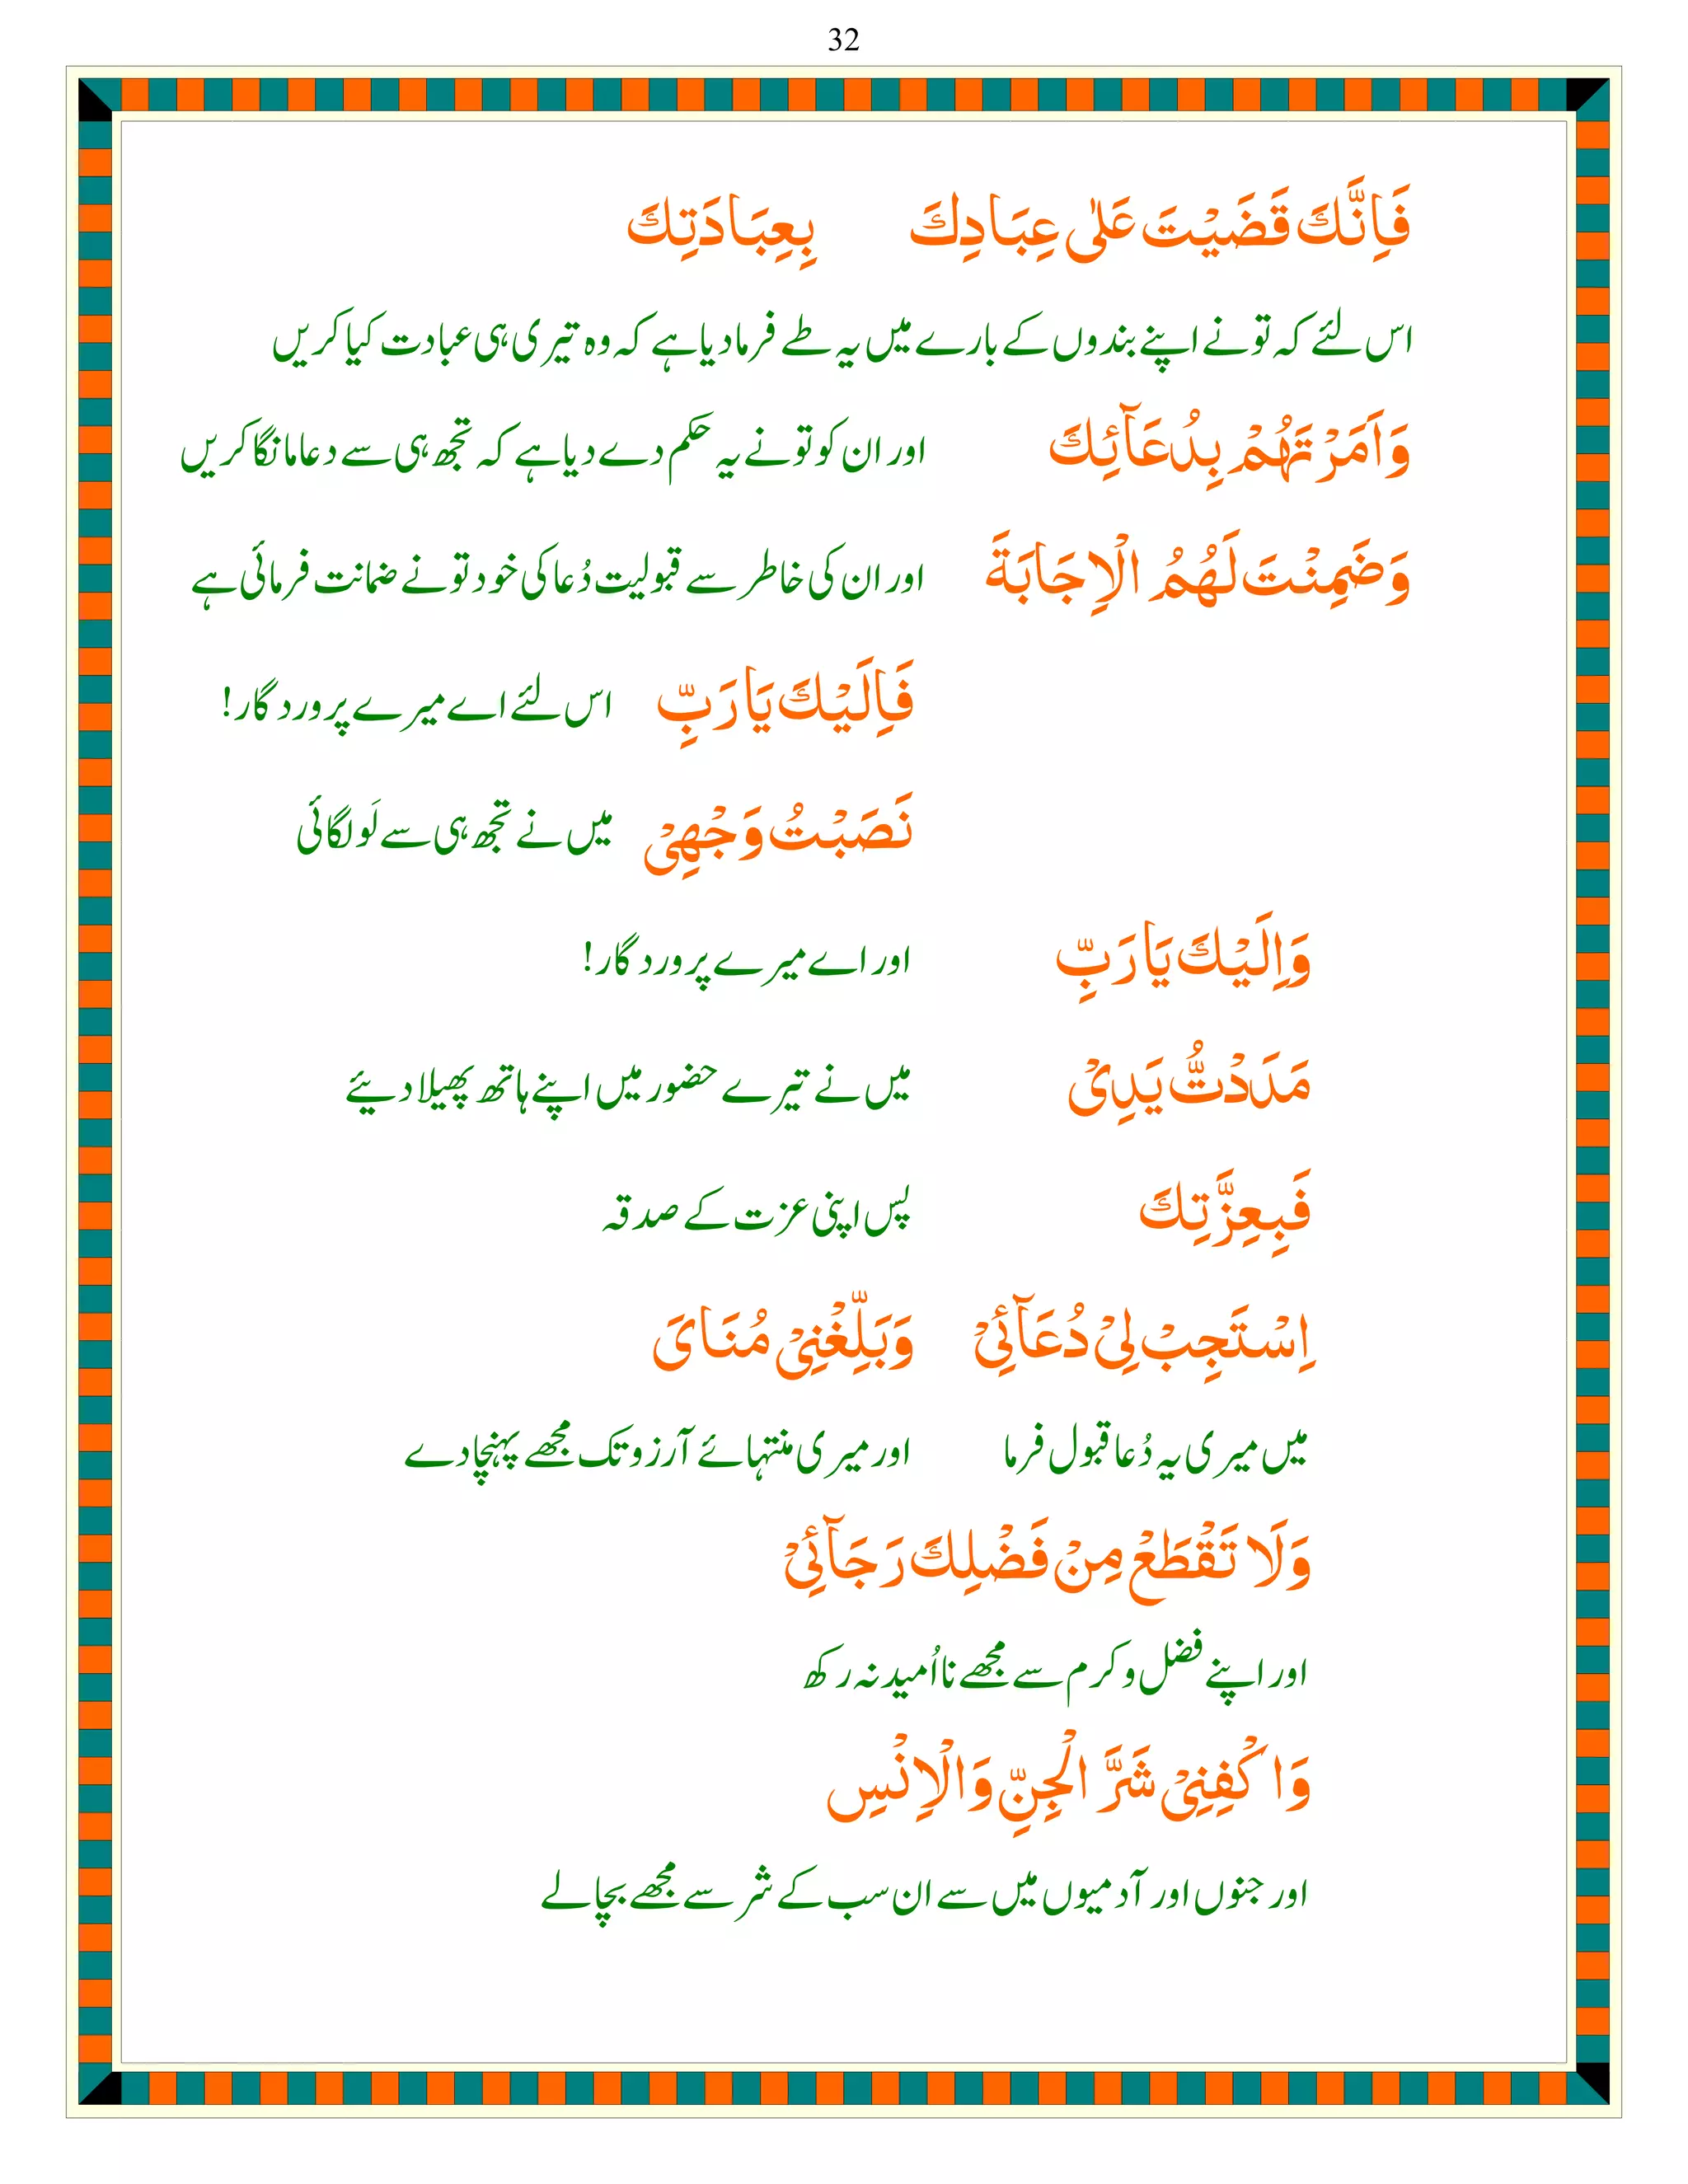 32
فَاِنَّكَ قَضَيْتَ عَلٰى عِبَادِكَ بِعِبَادَتِكَ
اس لئے کہ تو نے اپنے بندوں کے بارے میں یہ طے فرما دیا ہے کہ وہ تیری ہی عبادت کیا کریں
وَاَمَرْتَهُمْ بِدُعَآئِكَ اور ان کو تو نے یہ حکم دے دیا ہے کہ تجھ ہی سے دعا مانگا کریں
وَضَمِنْتَ لَهُمُ الْاِجَابَةَ اور ان کی خاطر سے قبولیت دُعا کی خود تو نے ضمانت فرمائی ہے
فَاِلَيْكَ يَا رَبِّ اس لئے اے میرے پروردگار!
نَصَبْتُ وَجْهِىْ میں نے تجھ ہی سے لَو لگائی
وَاِلَيْكَ يَا رَبِّ اور اے میرے پروردگار!
مَدَدْتُّ يَدِىْ میں نے تیرے حضور میں اپنے ہاتھ پھیلا دیئے
فَبِعِزَّتِكَ پس اپنی عزت کے صدقہ
اِسْتَجِبْ لِىْ دُعَآئِىْ وَبَلِّغْنِىْ مُنَاىَ
میں میری یہ دُعا قبول فرما اور میری منتہائے آرزو تک مجھے پہنچا دے
وَلَا تَقْطَعْ مِنْ فَضْلِكَ رَجَآئِىْ
اور اپنے فضل و کرم سے مجھے نا اُمید نہ رکھ
وَاكْفِنِىْ شَرَّ الْجِنِّ وَالْاِنْسِ
اور جنوں اور آدمیوں میں سے ان سب کے شر سے مجھے بچا لے